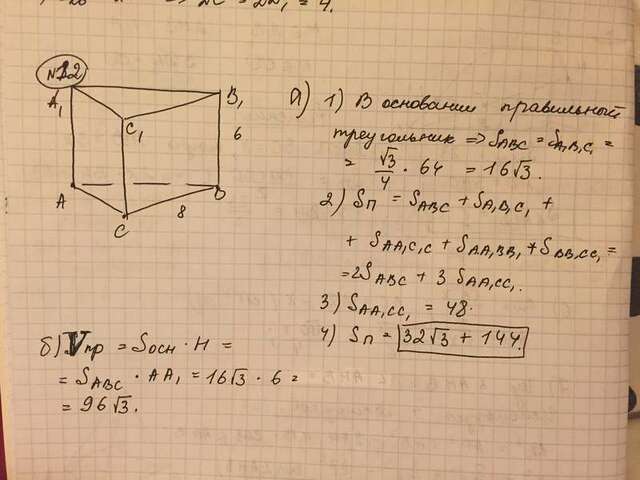 = 4.
N12
A₁
B₁
C₁
6
A
B
C
8
а) 1) В основании правильный
треугольник => S_ABC = S_A₁B₁C₁ =
= √3/4 · 64 = 16√3.
2) Sп = S_ABC + S_A₁B₁C₁ +
+ S_AA₁C₁C + S_AA₁BB₁ + S_BB₁CC₁ =
= 2S_ABC + 3 S_AA₁CC₁.
3) S_AA₁CC₁ = 48.
4) Sп = 32√3 + 144.
б) Vпр = Sосн · H =
= S_ABC · AA₁ = 16√3 · 6 =
= 96√3.